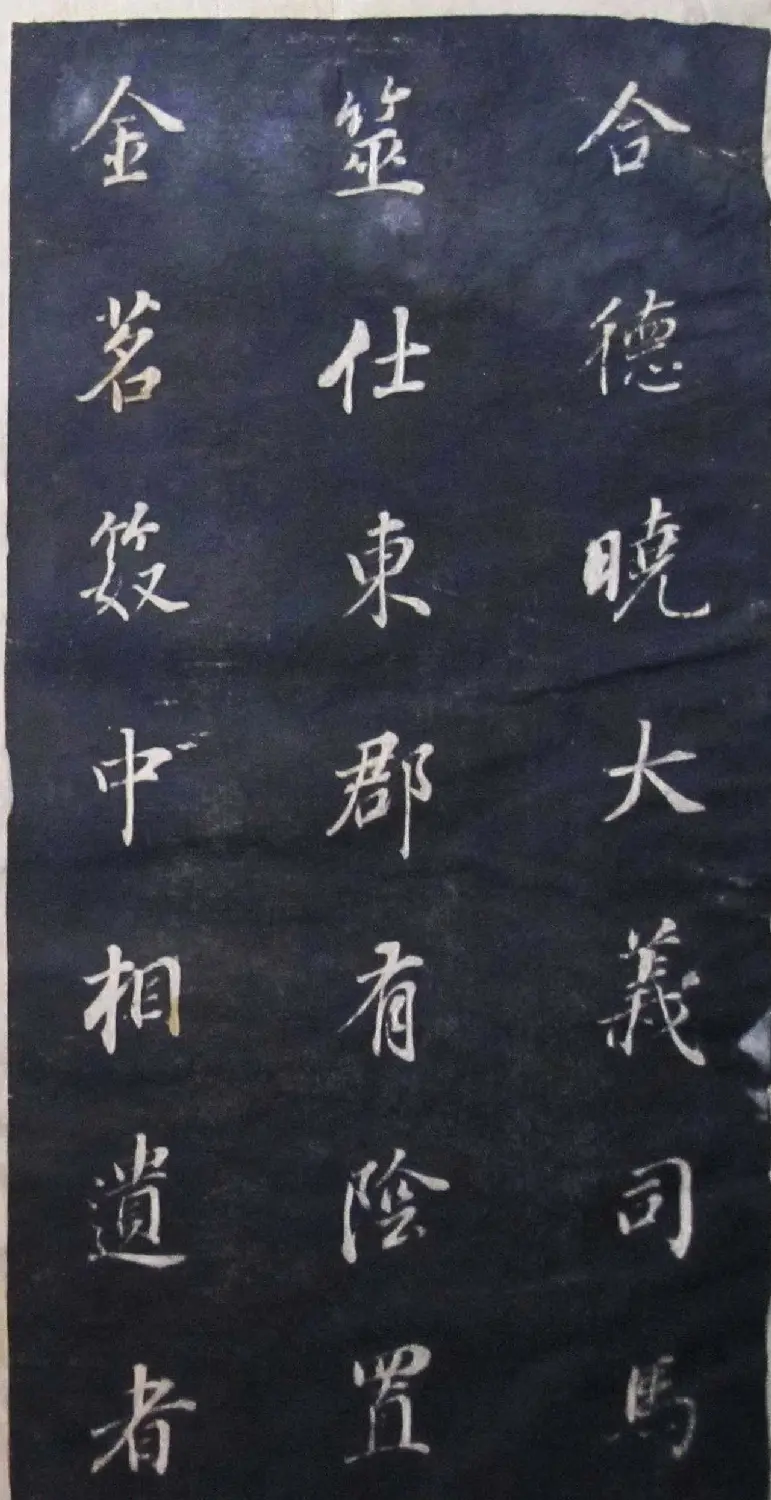 合德曉大義司馬
筮仕東郡有陰置
金茗笈中相遺者